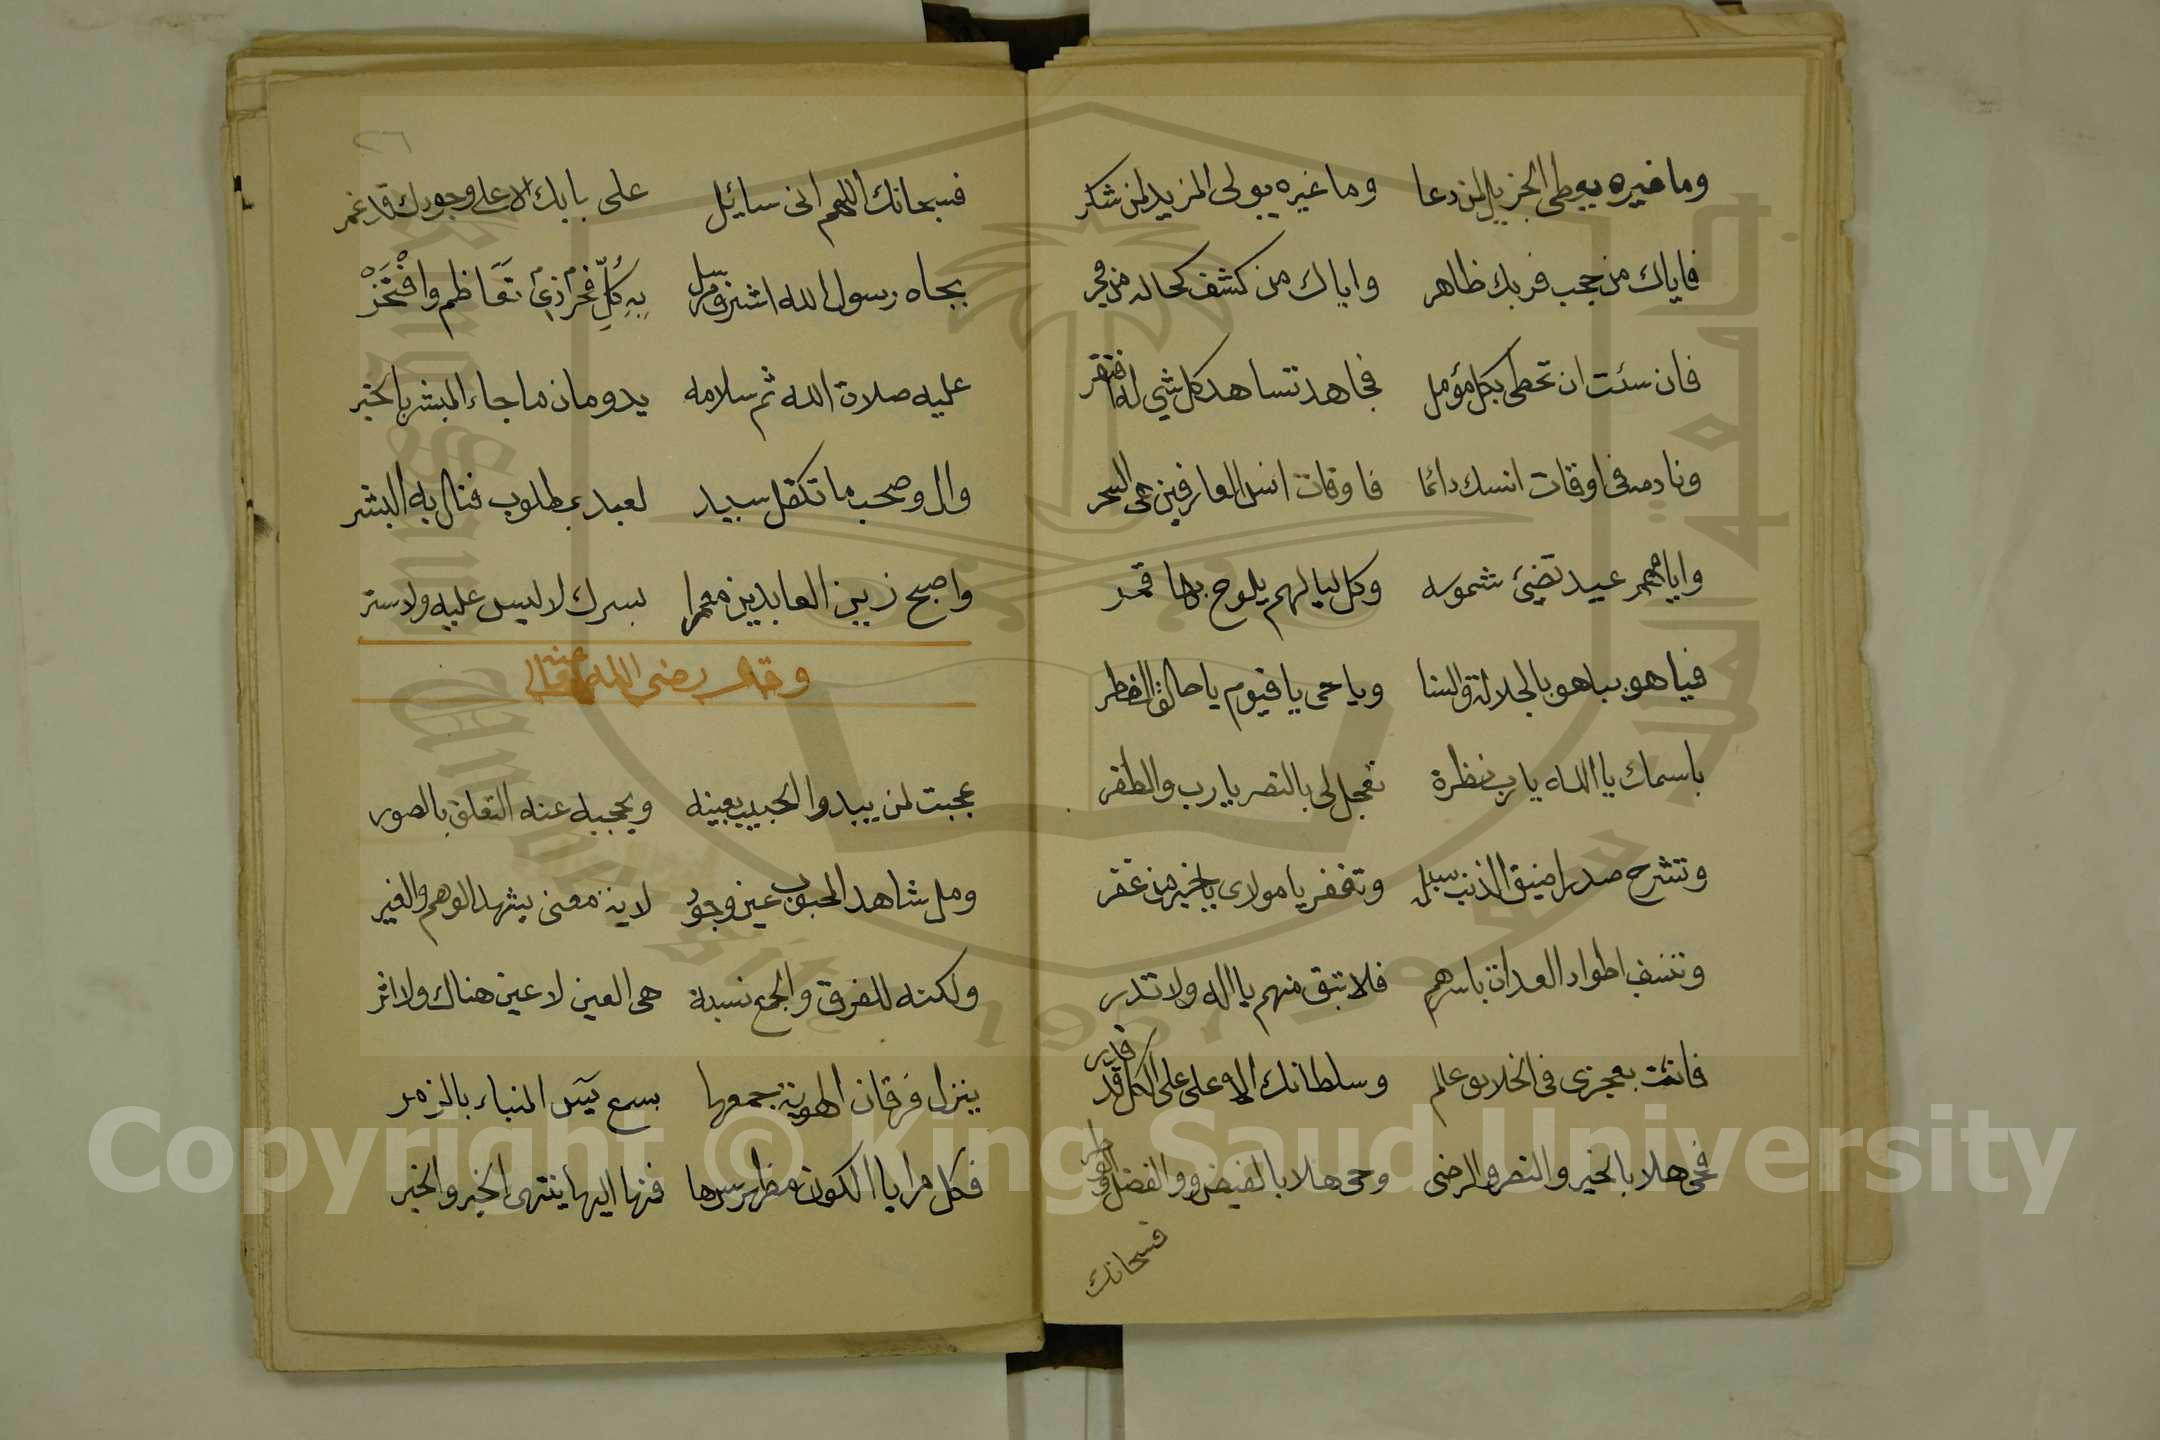 وما غيره يوطي الجزيل لمن دعا وما غيره يولى المزيد لمن شكر
فاياك من حجب فربك ظاهر واياك من كشف لحاله من فجر
فان سئت ان تحطى بكل مؤمل فجاهد تساهد كل شي له افتقر
ونادمه فى اوقات انسك دائما فاوقات انس العارفين هى السحر
وايامهم عيد تضيئ شموسه وكل لياليهم يلوح بها قمر
فيا هو بباهو بالجلالة والسنا ويا حى يا قيوم يا خالق الفطر
باسمك يا الله يا رب نظرة تعجل لى بالنصر يا رب والظفر
وتشرح صدرا ضيق الذنب سبله وتغفر يا مولاى يا خير من غفر
وتنسف اطواد العدات باسرهم فلا تبق منهم يا اله ولا تدر
فانت بعجزى فى الخلايق عالم وسلطانك الاعلى على الكل قد قدر
فحى هلا بالخير والنصر والرضى وحى هلا بالفيض والفضل
فسبحانك
٢٦
فسبحانك اللهم انى سايئل على بابك الاعلى وجودك قد غمر
بجاه رسول الله اشرف مرسل به كل فخر ذى تعاظم وافتخر
عليه صلاة الله ثم سلامه يدومان ما جاء المبشر بالخبر
وال وصحب ما تكفل سيد لعبد بمطلوب فنال به البشر
واصبح زين العابدين معمرا بسرك لا ليس عليه ولا ستر
وقال رضى الله عنه تعالى
عجبت لمن يبدوا الحبيب بعينه ويحجبه عنه التعلق بالصور
ومل شاهد المحبوب عين وجود لاية معنى يشهد الوهم والغير
ولكنه للفرق والجمع نسبة هى العين لا عين هناك ولا اثر
ينزل فرقان الهوية جمعها بسع يس المنباء بالزمر
فكل مرايا الكون مظهر سرها فمنها اليها ينتهى الخير والخبر
Copyright © King Saud University
جامعة الملك سعود
King Saud University
1957